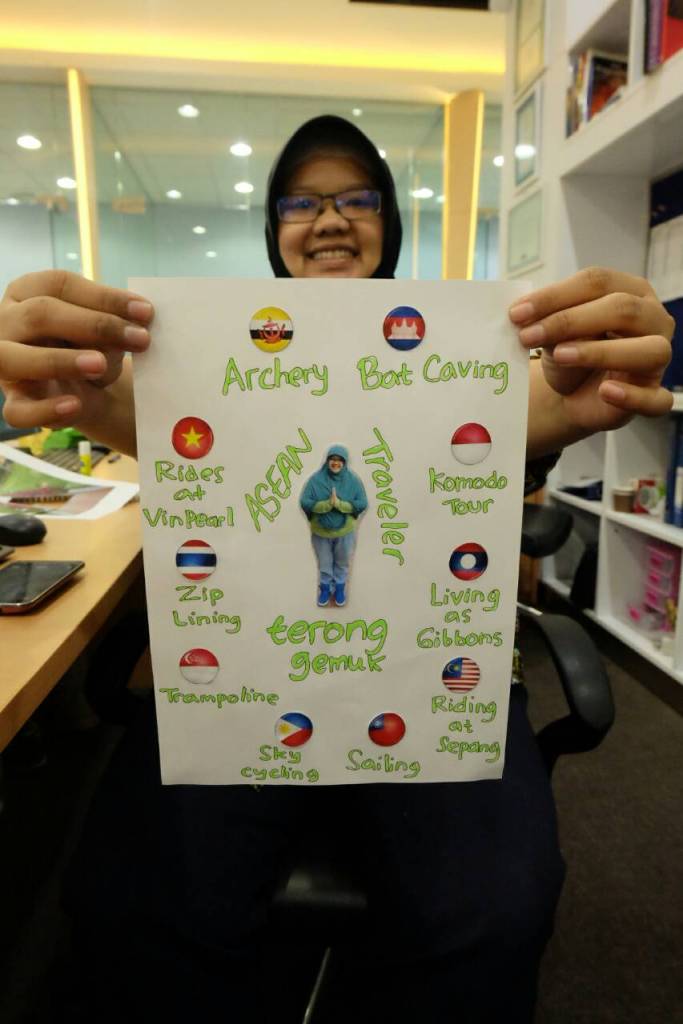 Archery
Bat Caving
Rides
at
VinPearl
ASEAN
Traveler
Komodo
Tour
Zip
Lining
Living
as
Gibbons
terong
gemuk
Trampoline
Riding
at
Sepang
Sky
cycling
Sailing